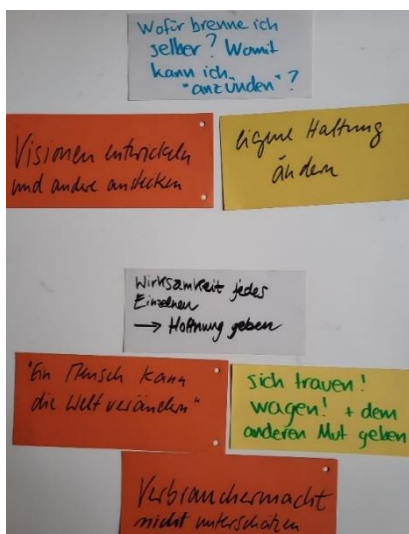 Wofür brenne ich
selber? Womit
kann ich
"anzünden"?
Visionen entwickeln
und andere anstecken
eigene Haltung
ändern
Wirksamkeit jedes
Einzelnen
→ Hoffnung geben
"Ein Mensch kann
die Welt verändern"
sich trauen!
wagen! + dem
anderen Mut geben
Verbrauchermacht
nicht unterschätzen